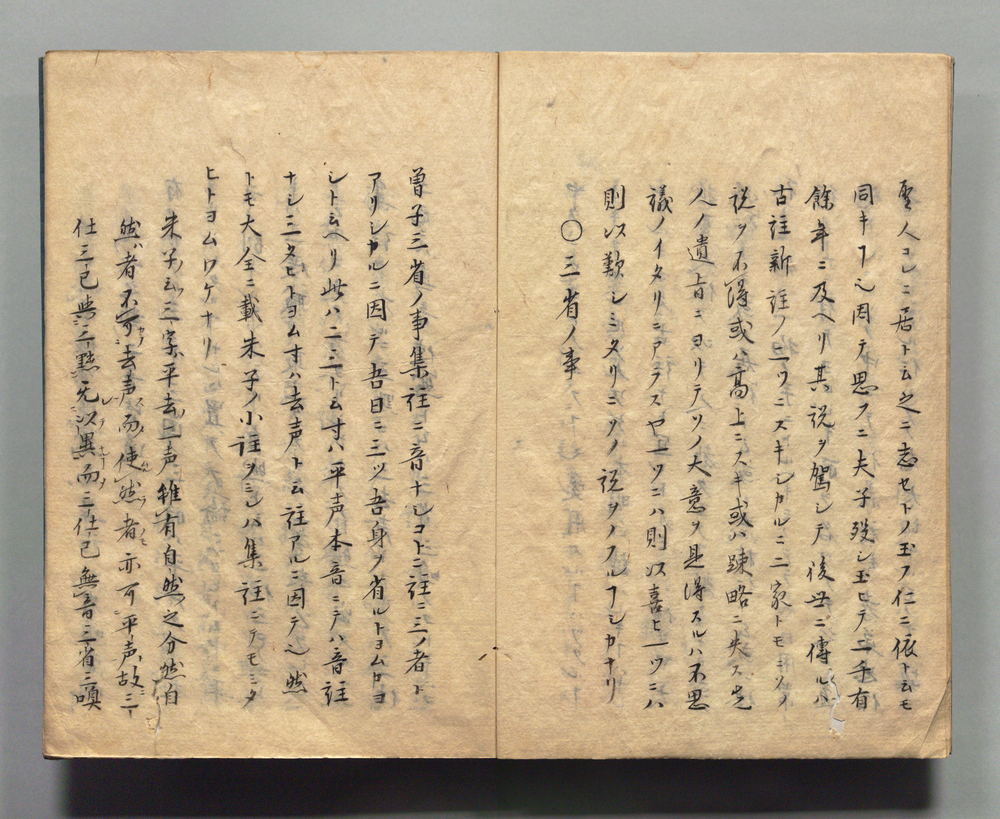 聖人コレニ居ト云之ニ志セトノ玉フ仁ニ依ト云モ
同キヿ也因テ思フニ夫子歿シ玉ヒテ二千有
餘年ニ及ヘリ其説ヲ駕シテ後世ニ傳ルハ
古註新註ノ二ツニスキシカルニ二家トモ其ノ
説ヲ不得或ハ高上ニスキ或ハ踈略ニ失ス先
人ノ遺旨ニヨリテソノ大意ヲ見得スルハ不思
議ノイタリニアラスヤ一ツニハ則以喜ヒ一ツニハ
則以歎シミタリニソノ説ヲノフルヿシカナリ
〇三省ノ事
曽子三省ノ事集註ニ音ナシコトニ註ニ三ノ者ト
アリシカルニ因テ吾日ニ三ツ吾身ヲ省ルトヨムヨ
シト云ヘリ此ハ二三ト云寸ハ平声本音ニテハ音註
ナシ三タヒトヨム寸ハ去声ト云註アルニ因テ也然
トモ大全ニ載朱子ノ小註ヲミレハ集註ニテモミタ
ヒトヨムワケナリ
朱子云三字平去二声雖有自然之分然自
然者不可去声而使然者亦可平声故三
仕三已與三黙无以異而三仕三已無音三省三嗅